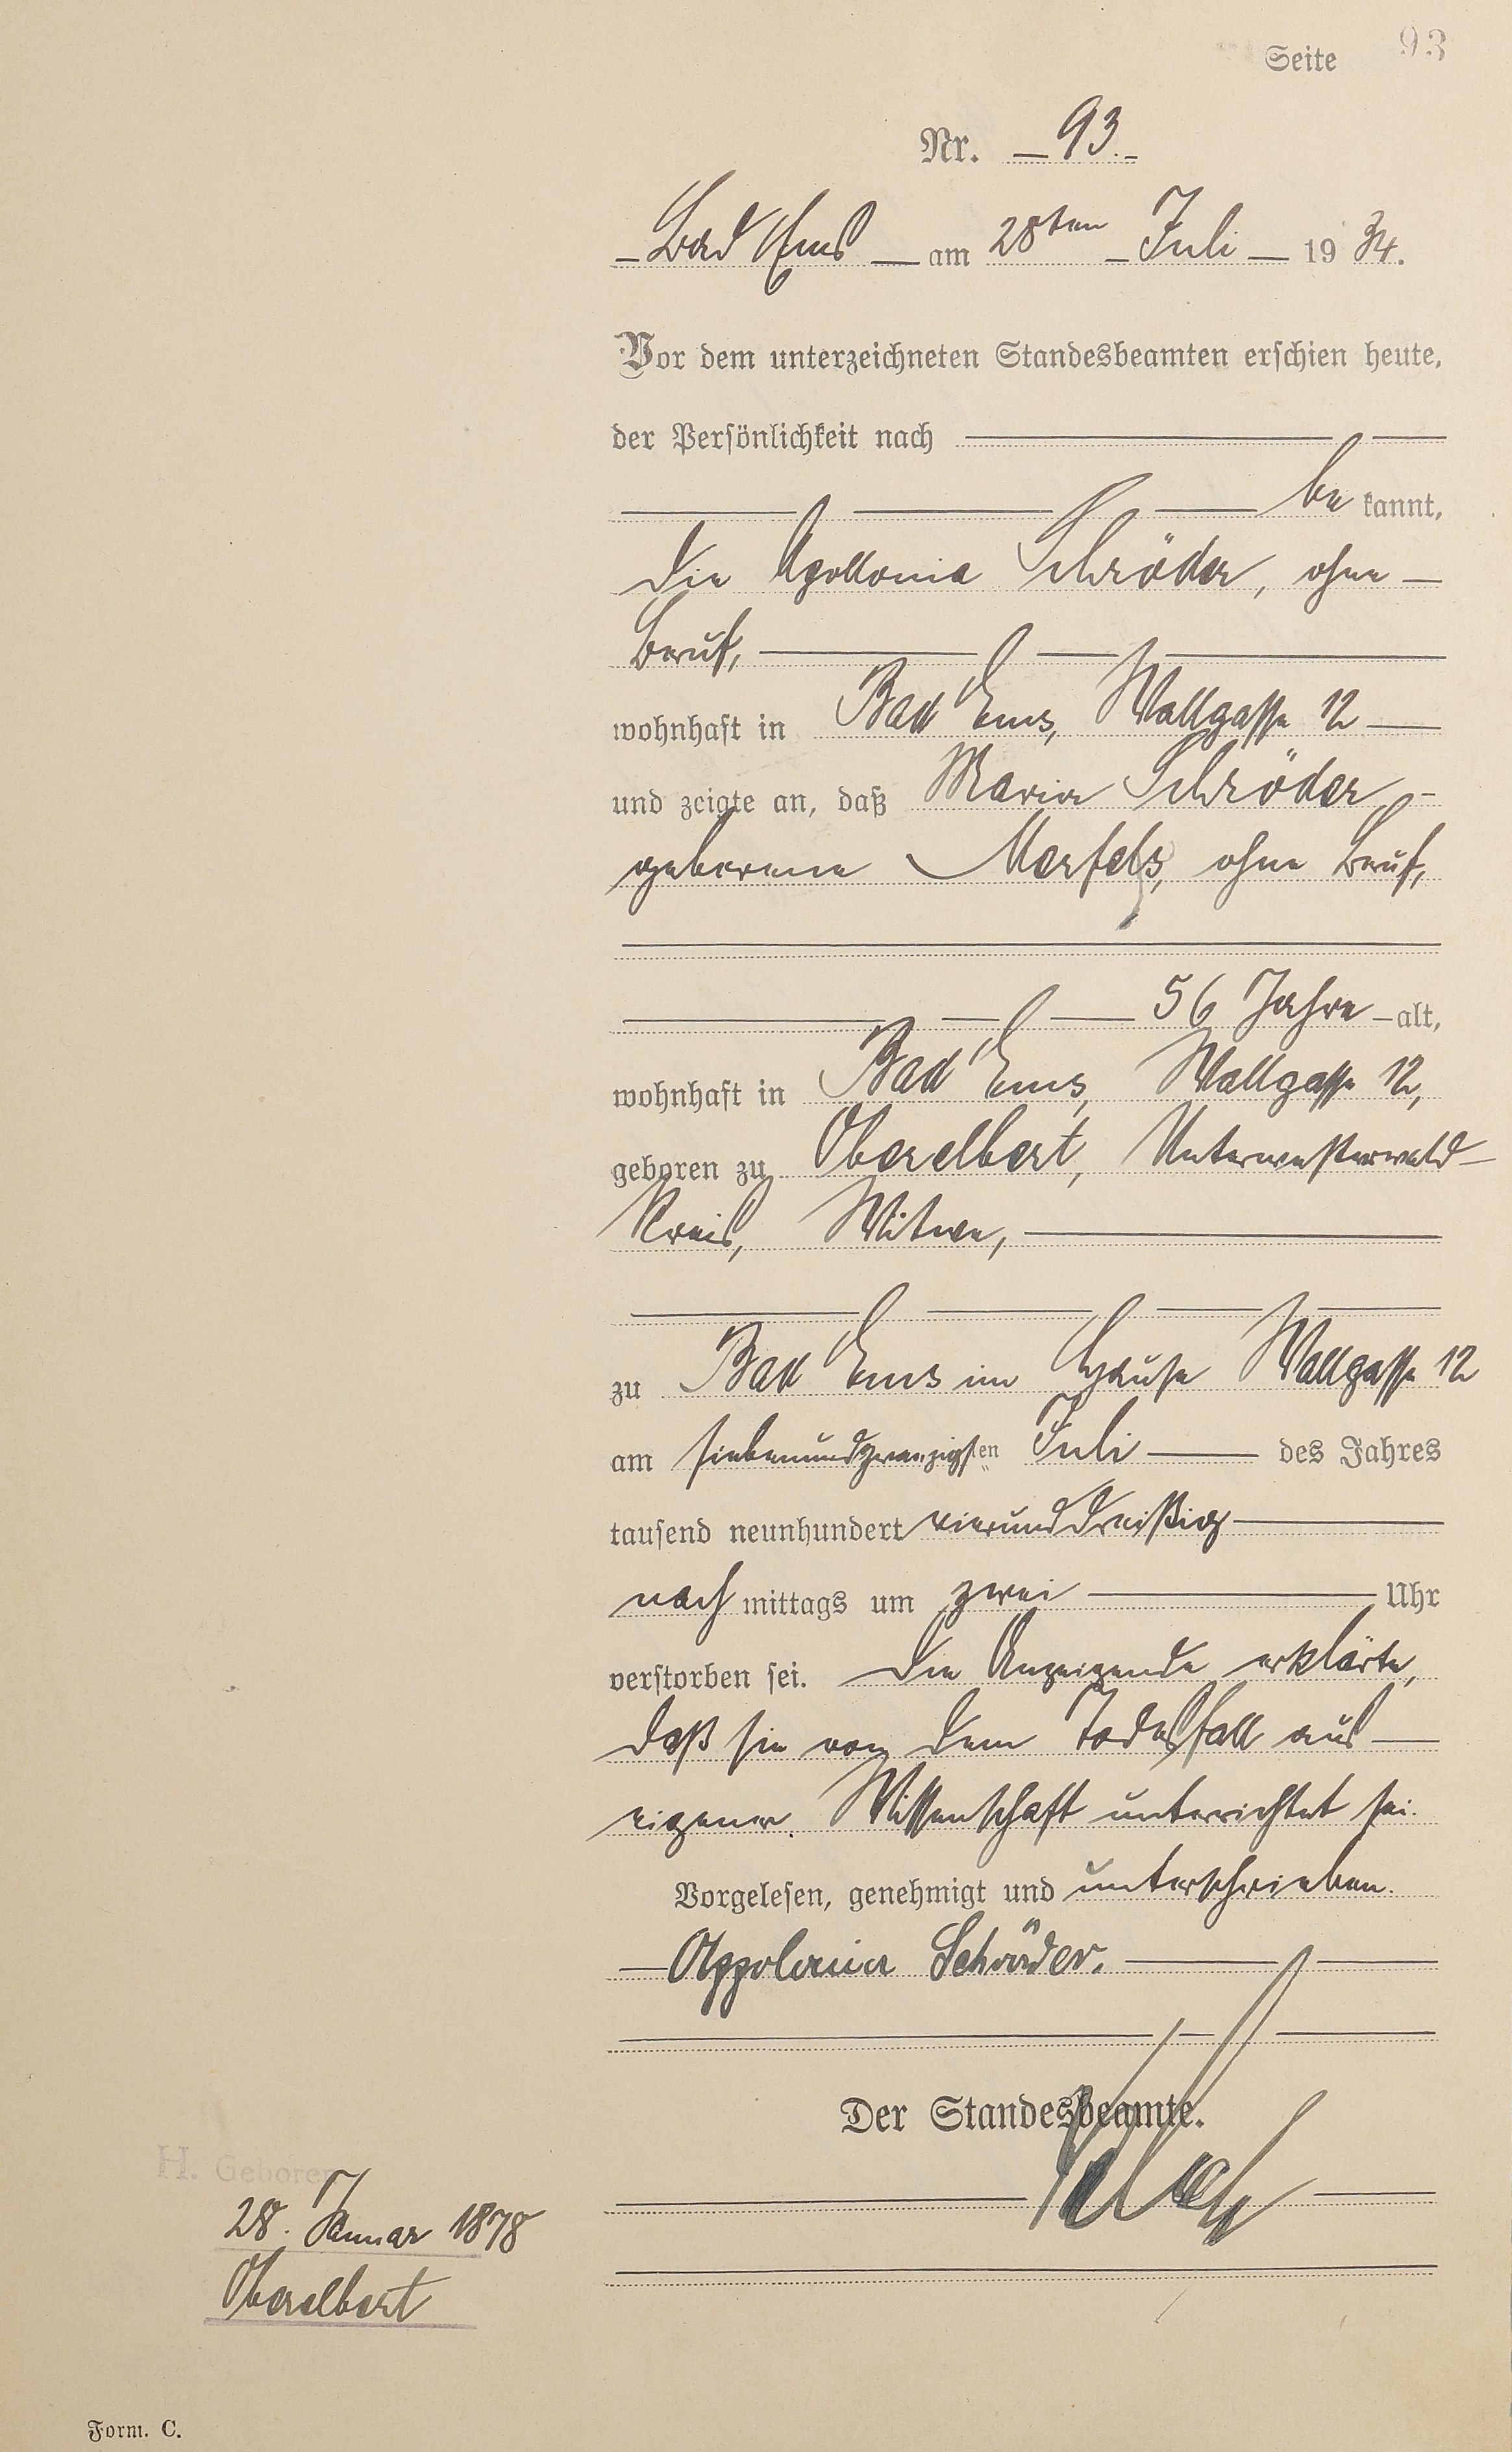 Seite 93
Nr. 93.
Bad Ems am 28ten Juli 1934.
Vor dem unterzeichneten Standesbeamten erschien heute,
der Persönlichkeit nach
be kannt,
die Apollonia Schröder, ohne
Beruf,
wohnhaft in Bad Ems, Wallgasse 12
und zeigte an, daß Maria Schröder
geborene Merfels, ohne Beruf,
56 Jahre alt,
wohnhaft in Bad Ems, Wallgasse 12,
geboren zu Oberelbert, Unterwesterwald-
Kreis, Witwe,
zu Bad Ems im Hause Wallgasse 12
am siebenundzwanzigsten Juli des Jahres
tausend neunhundert vierunddreißig
nach mittags um zwei Uhr
verstorben sei. Die Anzeigende erklärte,
daß sie von dem Todesfall aus
eigener Wissenschaft unterrichtet sei.
Vorgelesen, genehmigt und unterschrieben.
Appolonia Schröder.
Der Standesbeamte.
H. Geboren
28. Januar 1878
Oberelbert
Form. C.